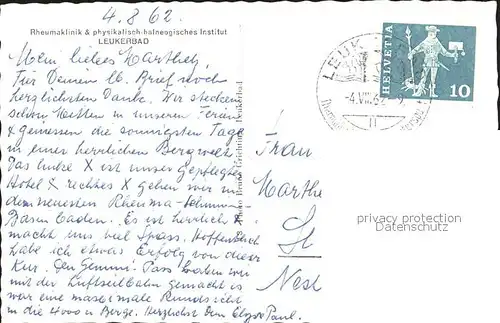 4.8.62.
Rheumaklinik & physikalisch-balneologisches Institut
LEUKERBAD
Mein liebes Martheli,
Für Deinen lb. Brief noch
herzlichsten Danke. Wir stecken
schon mitten in unseren Ferien
& geniessen die sonnigsten Tage
in einer herrlichen Bergwelt.
Das linke X ist unser gepflegtes
Hotel & rechtes X gehen wir in
dem neuesten Rheuma-
baden. Es ist herrlich &
macht uns viel Spass. Hoffentlich
habe ich etwas Erfolg von dieser
Kur. Den Gemmi-Pass haben wir
mit der Luftseilbahn gemacht es
war eine Rundsicht
in die 4000 Berge. Herzlichst Dein Paul.
Frau
Marthe
Nest
HELVETIA
10
LEUK
-4.VIII.62-
privacy protection
Datenschutz